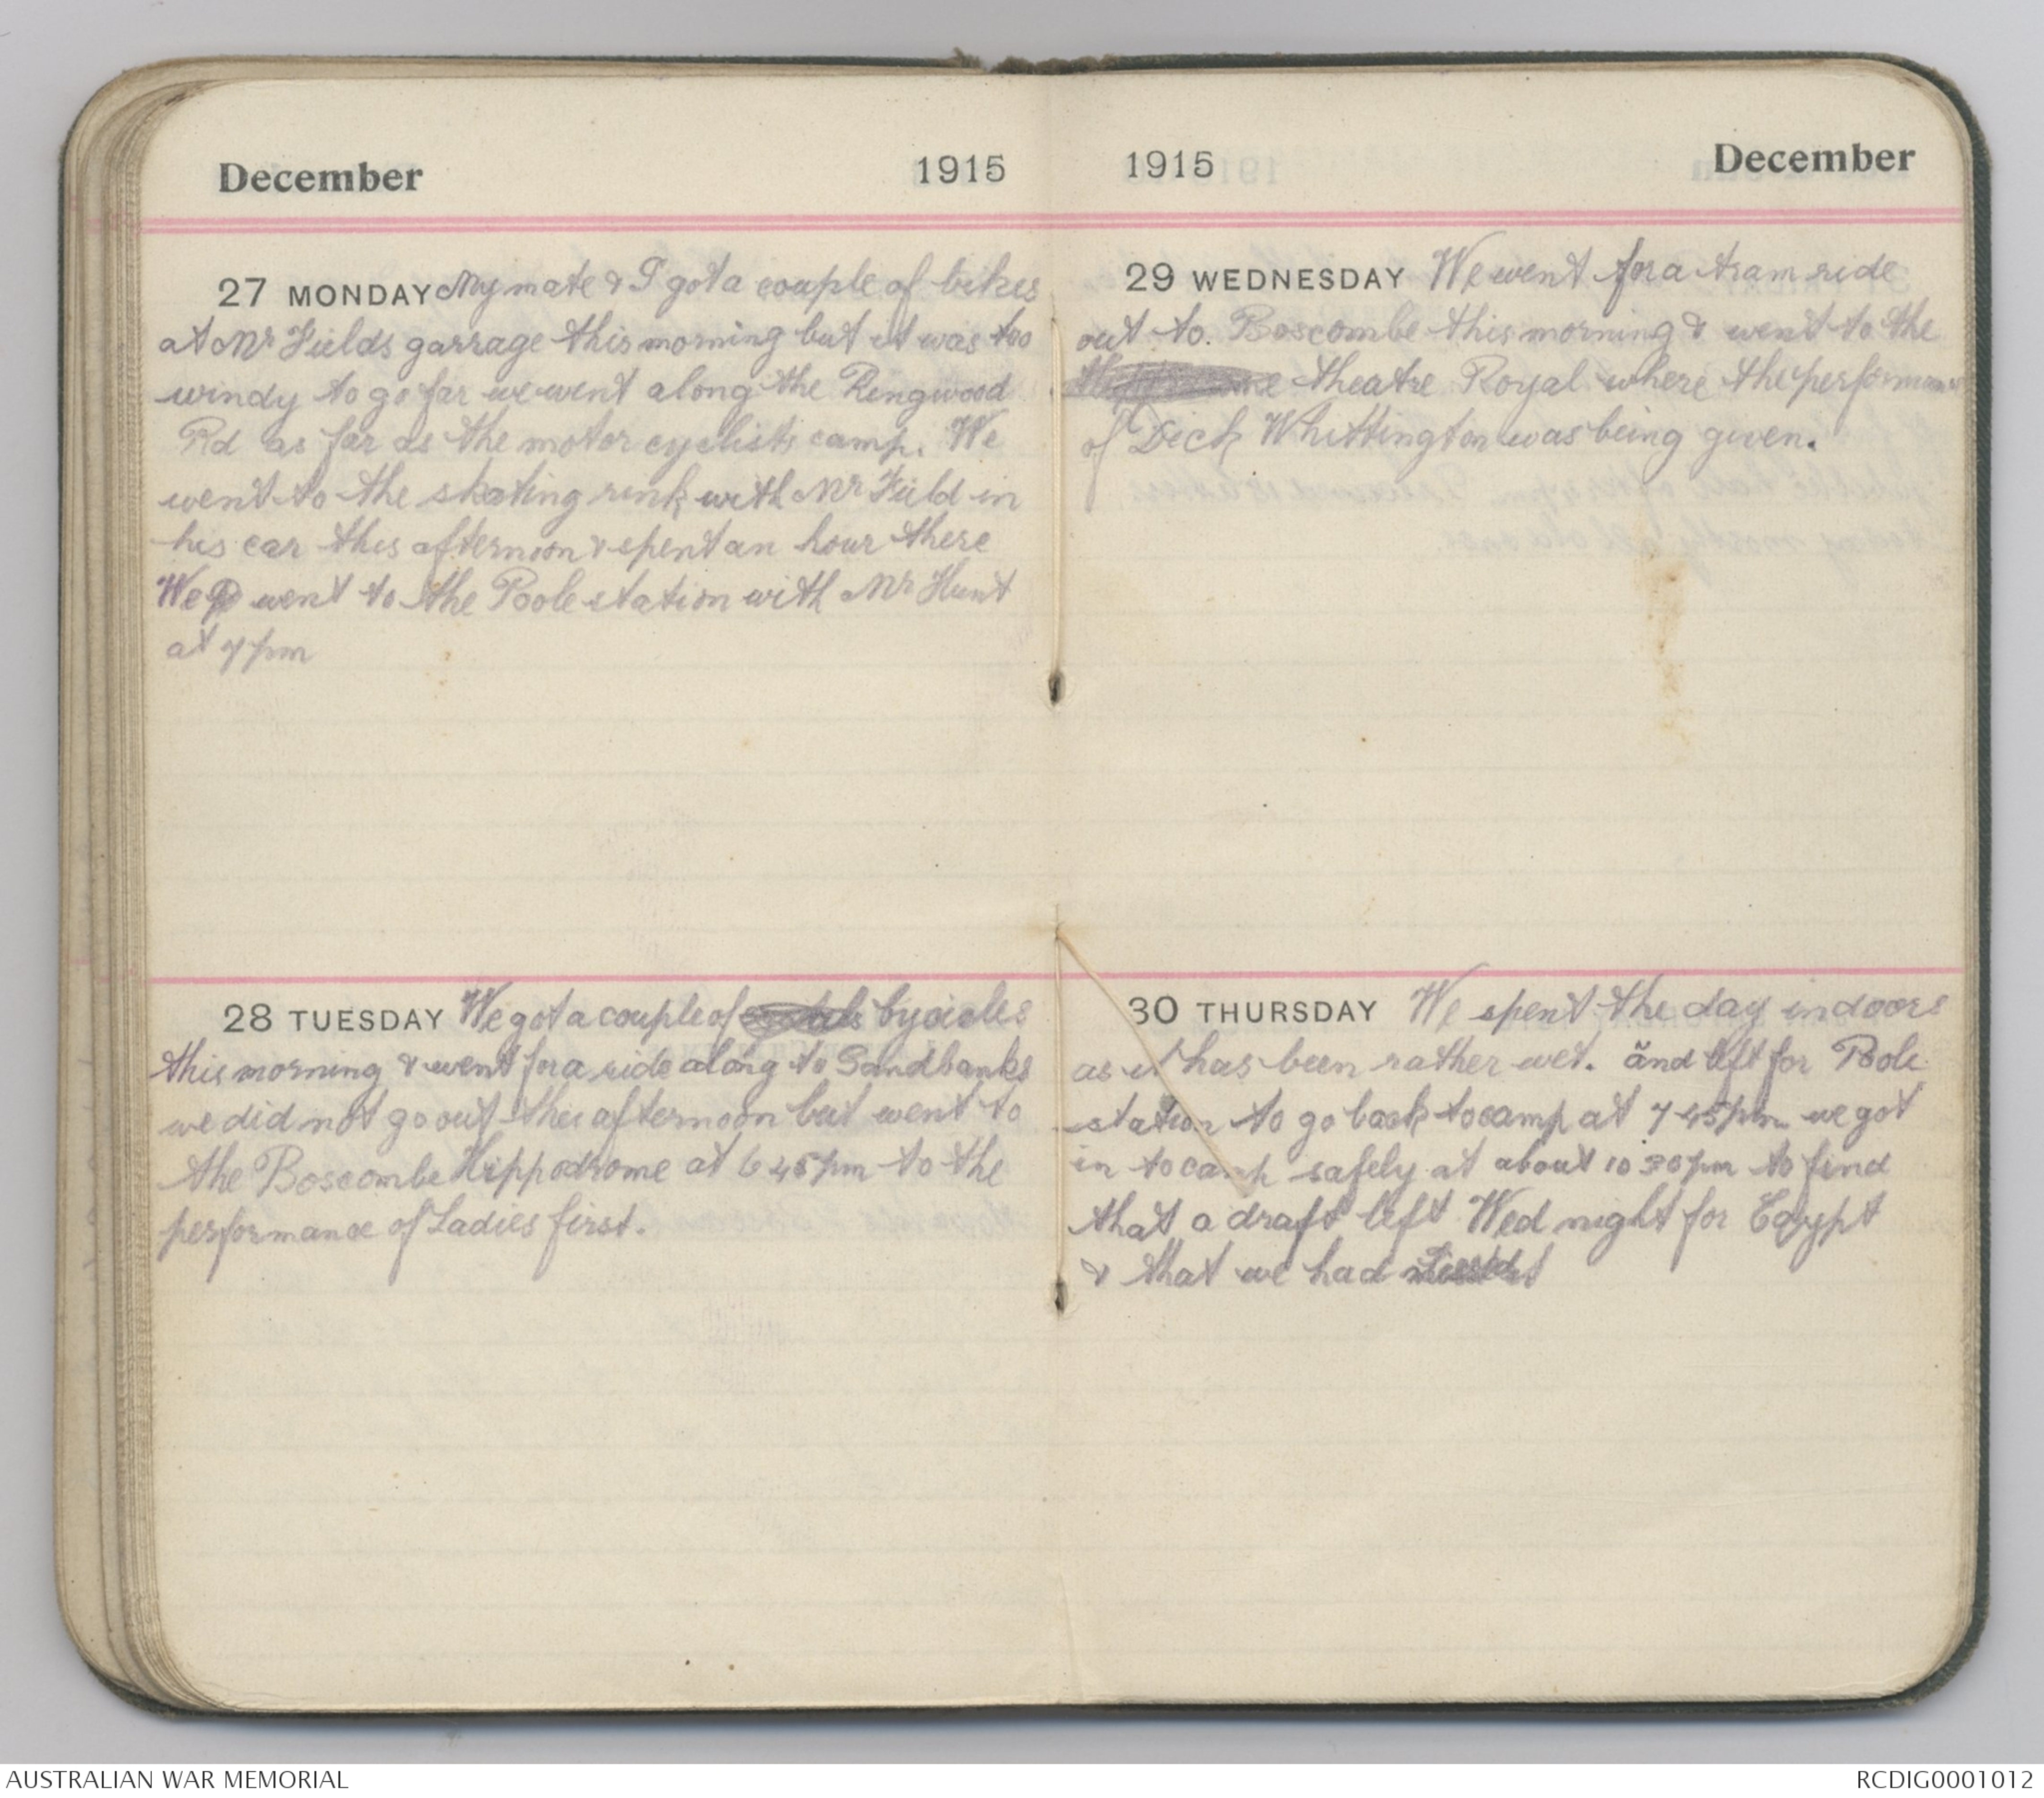 December 1915
27 MONDAY My mate & I got a couple of bikes
at Mr Fields garrage this morning but it was too
windy to go far we went along the Ringwood
Rd as far as the motor cyclists camp. We
went to the skating rink with Mr Field in
his car this afternoon & spent an hour there
We went to the Poole station with Mr Hunt
at 7 pm
28 TUESDAY We got a couple of bycicles
this morning & went for a ride along to Sandbanks
we did not go out this afternoon but went to
the Boscombe Hippodrome at 6 45 pm to the
performance of Ladies first.
1915 December
29 WEDNESDAY We went for a tram ride
out to. Boscombe this morning & went to the
theatre Royal where the performance
of Dick Whittington was being given.
30 THURSDAY We spent the day indoors
as it has been rather wet. and left for Poole
station to go back to camp at 7 45 pm we got
in to camp safely at about 10.30 pm to find
that a draft left Wed night for Egypt
& that we had
AUSTRALIAN WAR MEMORIAL
RCDIG0001012